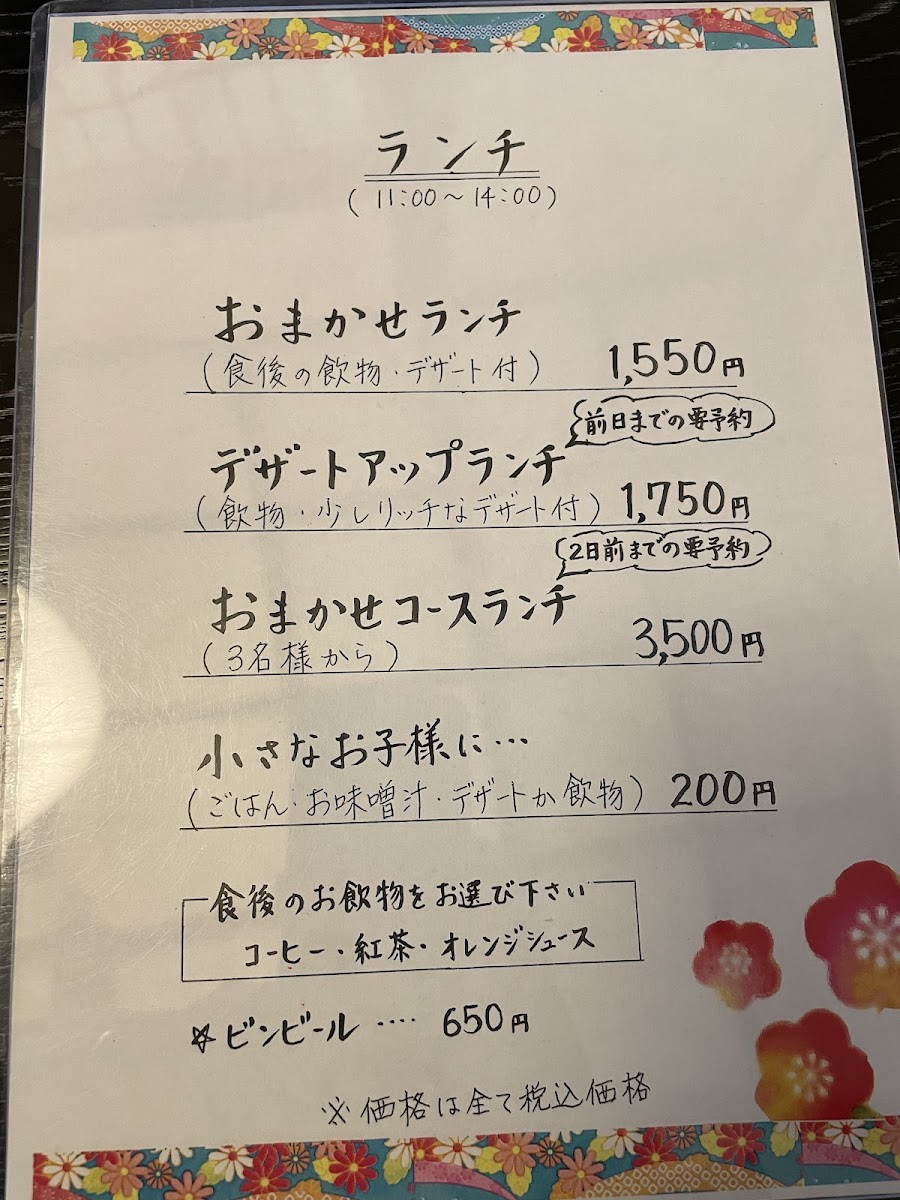 ランチ
(11:00〜14:00)
おまかせランチ
(食後の飲物・デザート付) 1,550円
前日までの要予約
デザートアップランチ
(飲物・少しリッチなデザート付) 1,750円
2日前までの要予約
おまかせコースランチ
(3名様から) 3,500円
小さなお子様に…
(ごはん・お味噌汁・デザートか飲物) 200円
食後のお飲物をお選び下さい
コーヒー・紅茶・オレンジジュース
☆ビンビール …. 650円
※価格は全て税込価格